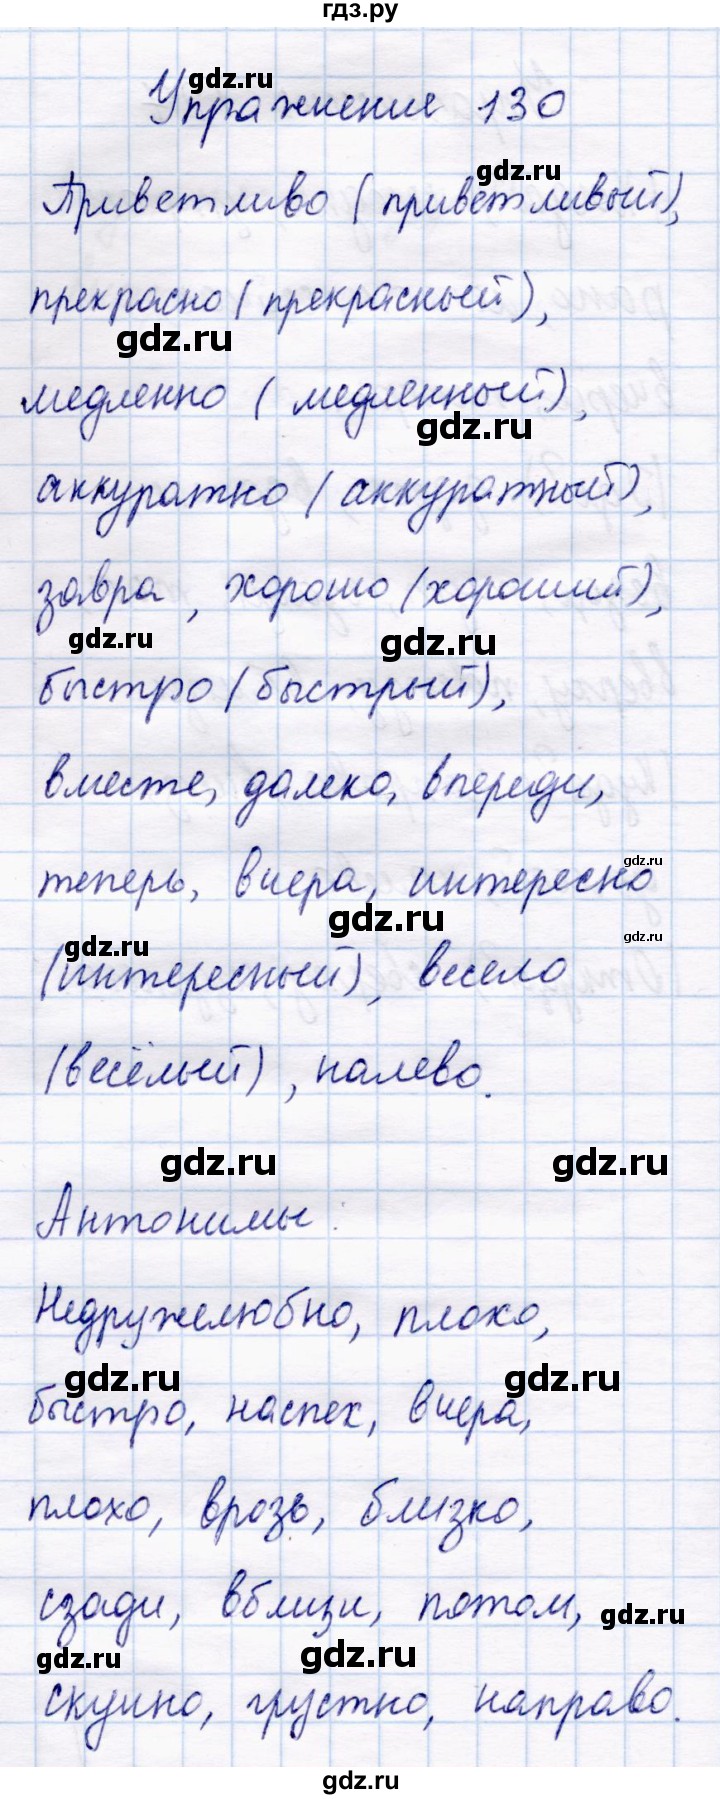 гдз.ру
gdz.ru
Упражнение 130
gdz.ru
Приветливо (приветливый),
прекрасно (прекрасный),
gdz.ru
медленно (медленный),
gdz.ru
аккуратно (аккуратный),
завра, хорошо (хороший),
gdz.ru gdz.ru
быстро (быстрый),
вместе, далеко, впереди,
gdz.ru
теперь, вчера, интересно
gdz.ru gdz.ru gdz.ru
(интересный), весело
(весёлый), налево.
gdz.ru gdz.ru
Антонимы:
Недружелюбно, плохо,
gdz.ru gdz.ru
быстро, наспех, вчера,
плохо, врозь, близко,
сзади, вблизи, потом,
gdz.ru
gdz.ru gdz.ru
скучно, грустно, направо.
gdz.ru